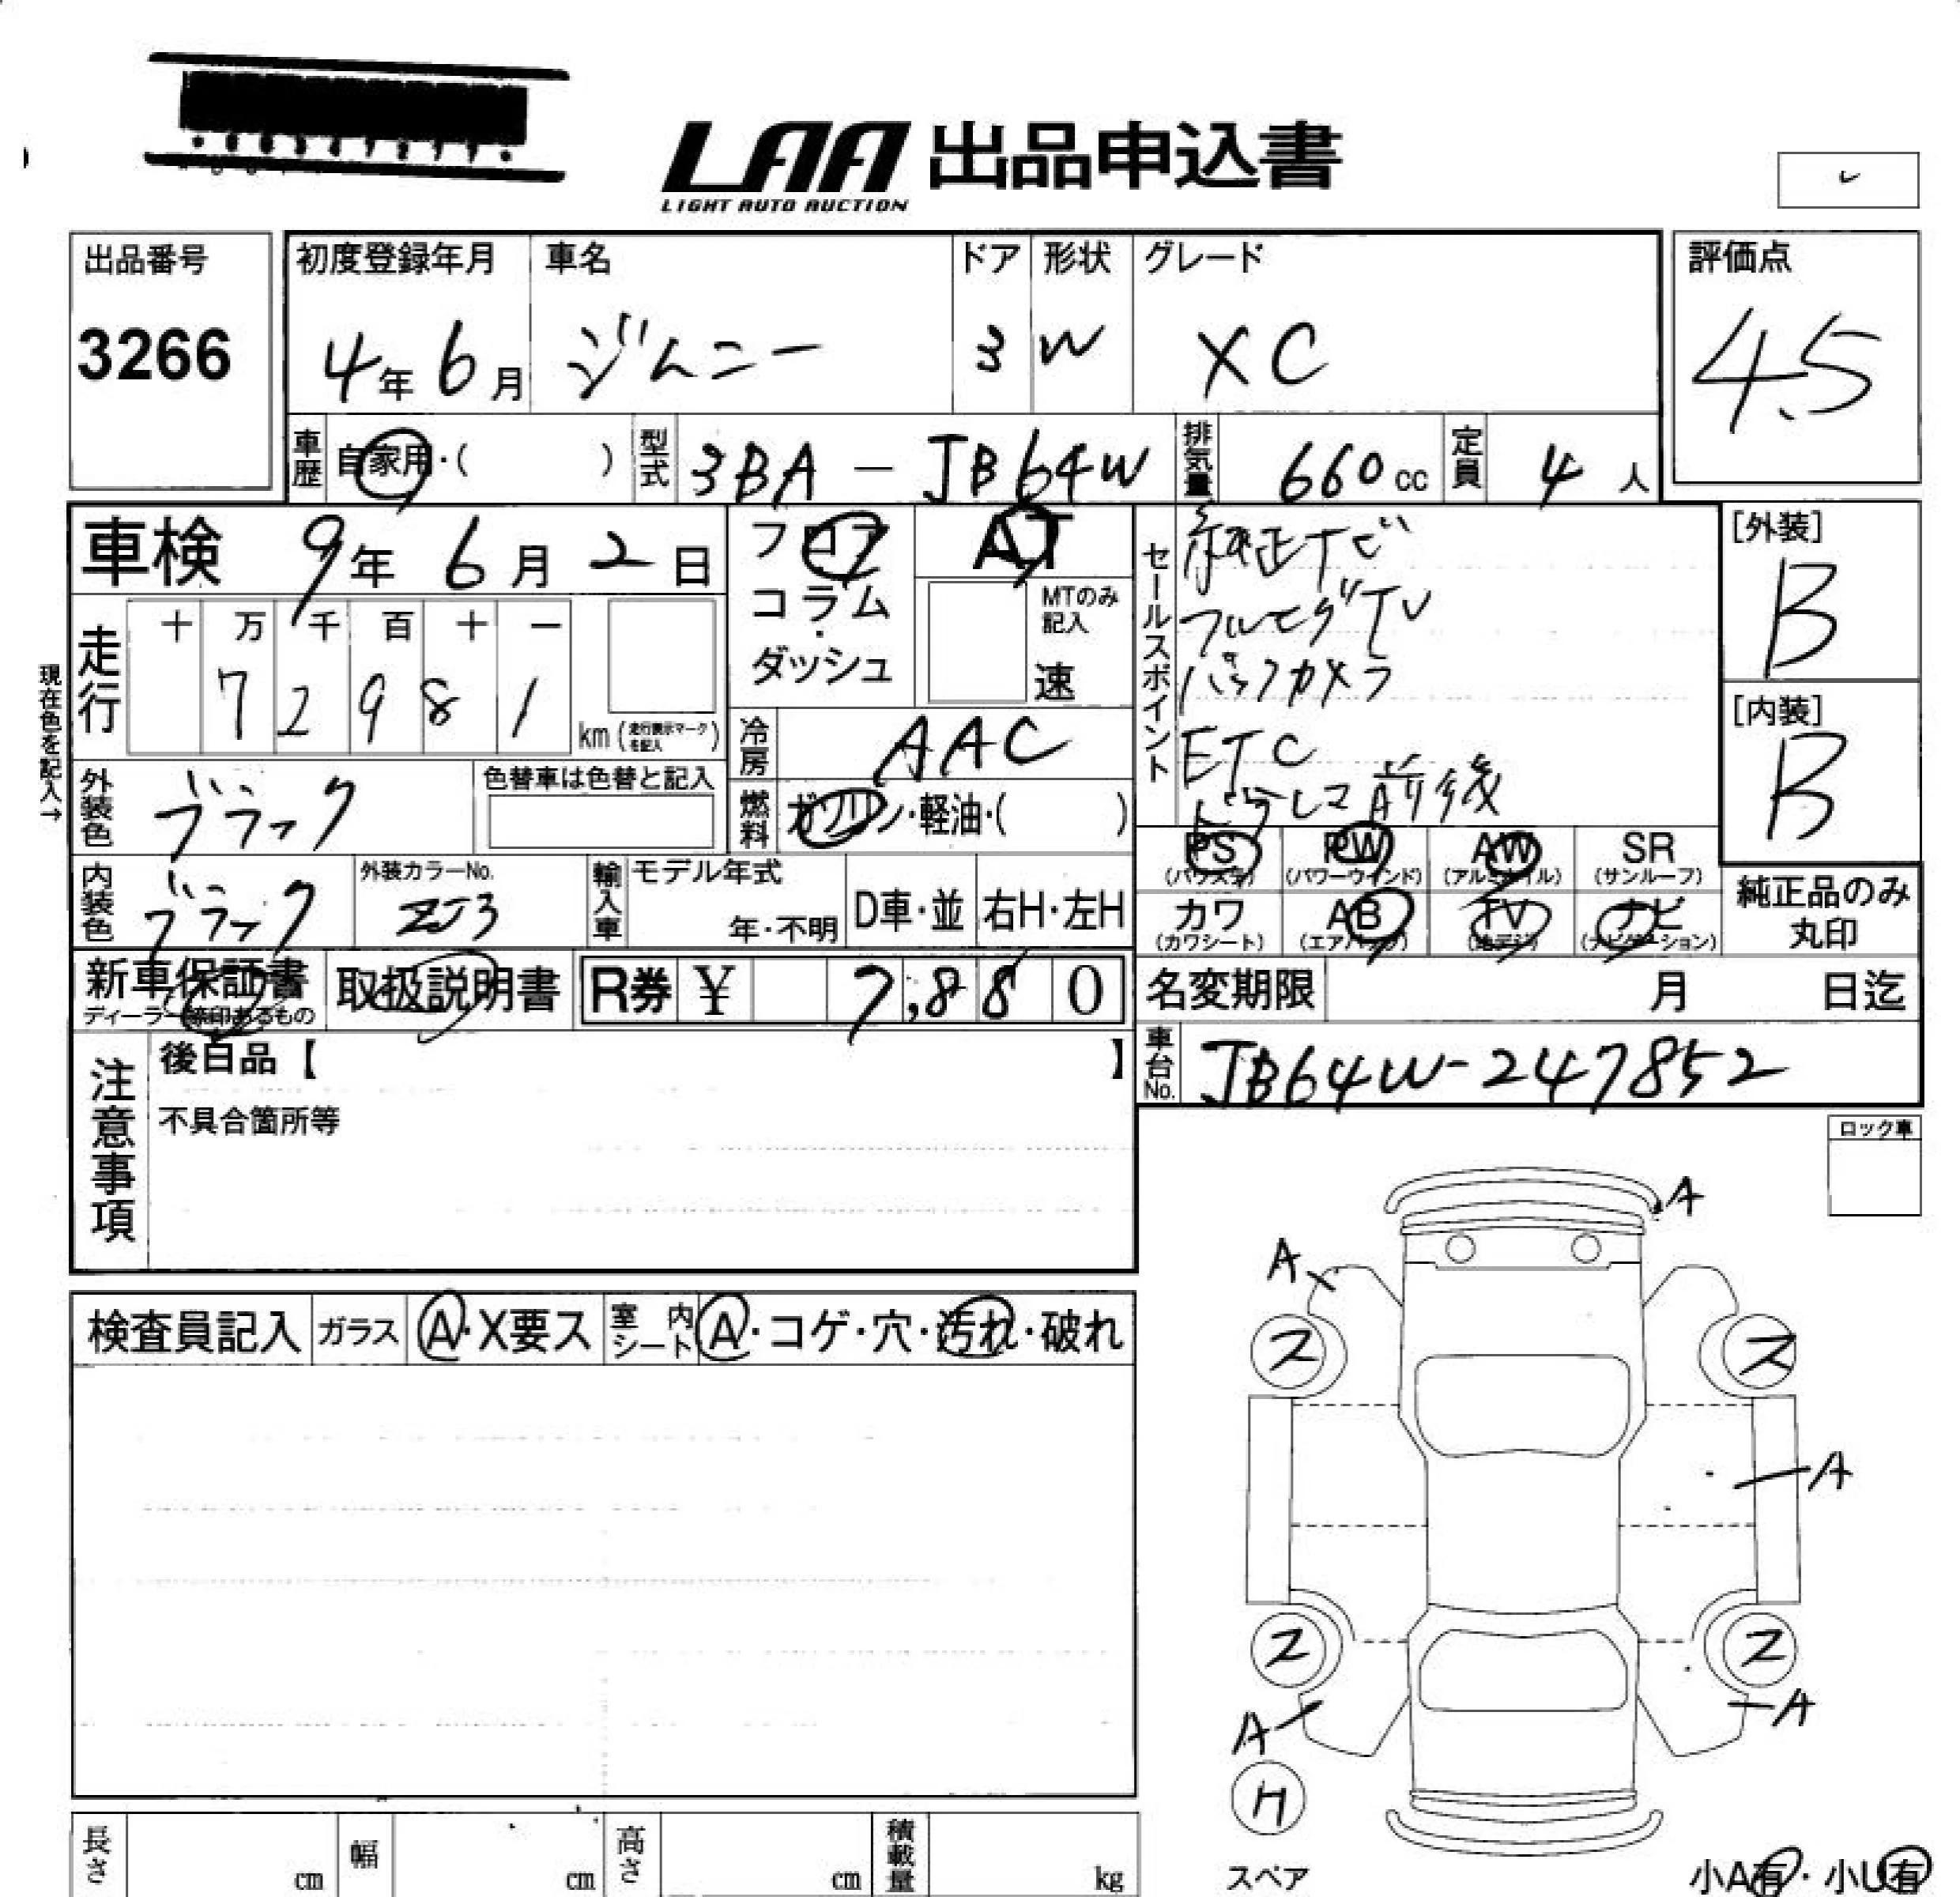 LAA 出品申込書
LIGHT AUTO AUCTION
出品番号
3266
初度登録年月 車名 ドア 形状 グレード
4年 6月 ジムニー 3 W XC
評価点
4.5
車歴 自家用・( ) 型式 3BA-JB64W 排気量 660cc 定員 4人
車検 9年 6月 2日
フロア
コラム
・
ダッシュ
AT
MTのみ
記入
速
走行 十 万 千 百 十 一
7 2 9 8 1 km (走行表示マークを記入)
現在色を記入→
外装色 ブラック 色替車は色替と記入
冷房 AAC
燃料 ガソリン・軽油・( )
内装色 ブラック 外装カラーNo. ZJ3 輸入車 モデル年式 年・不明 D車・並 右H・左H
新車保証書 取扱説明書 R券 ¥ 7,880
セールスポイント
純正ナビ
フルセグTV
バックカメラ
ETC
ドラレコ前後
[外装]
B
[内装]
B
PS PW AW SR
(パワステ) (パワーウインド) (アルミホイル) (サンルーフ)
カワ AB TV ナビ
(カワシート) (エアバッグ) (地デジ) (ナビゲーション)
純正品のみ
丸印
名変期限 月 日迄
車台No. JB64W-247852
注意事項
後日品【 】
不具合箇所等
ロック車
検査員記入 ガラス A・X要ス 室内シート A・コゲ・穴・汚れ・破れ
A
A
ス ス
A
ス ス
A A
H
スペア
小A有・小U有
長さ cm 幅 cm 高さ cm 積載量 kg